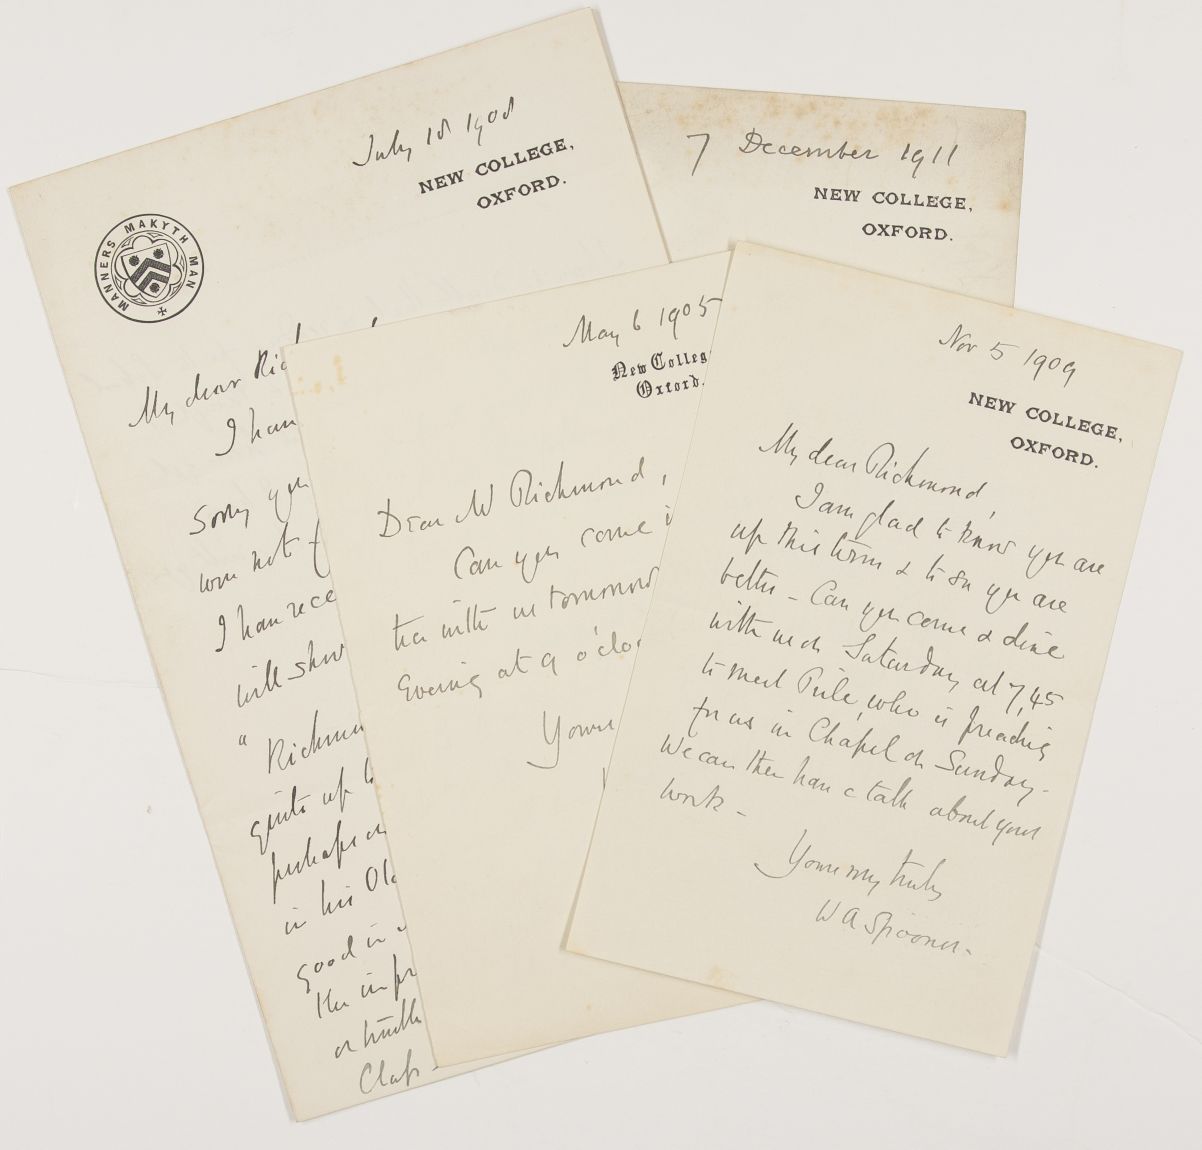 July 18 1908
NEW COLLEGE,
OXFORD.
MANNERS MAKYTH MAN
My dear Rich
I han
sorry you
were not
I have rece
will show
"
Richmo
quite up
perhaps
in his Old
good in
the
or
Class
7 December 1911
NEW COLLEGE,
OXFORD.
May 6 1905
New Colleg
Oxford.
Dear Mr Richmond,
Can you come
tea with us tomorrow
Evening at 9 o'cloc
Yours
Nov 5 1909
NEW COLLEGE,
OXFORD.
My dear Richmond,
I am glad to know you are
up this term & to see you are
better - Can you come & dine
with us on Saturday at 7,45
to meet Pile, who is preaching
for us in Chapel on Sunday.
We can then have a talk about your
work -
Yours very truly
W A Spooner.